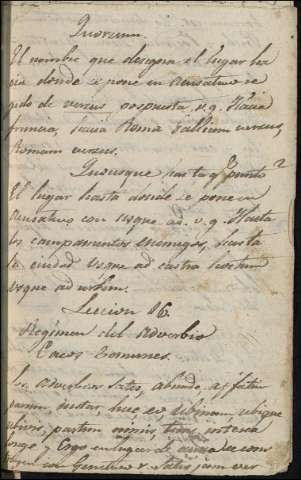 Quorsum.
El nombre que designa el lugar ha
cia donde se pone en acusativo se
guido de versus pospuesta, v.g. Hacia
francia, hacia Roma Galliam versus,
Romam versus.
Quousque, hasta q.e punto?
El lugar hasta donde se pone en
acusativo con usque ad. v.g. Hasta
los campamentos enemigos, hasta
la ciudad usque ad castra hostium
usque ad urbem.
Leccion 16.
Regimen del adverbio
Casos comunes.
Los adverbios satis, abunde, affatim
parum, instar, huc, eo ubinam, ubique
ubivis, partim nimis, interea
longe, y Ergo en lugar de causa se cons
truyen con Genitivo v. Satis jam ver